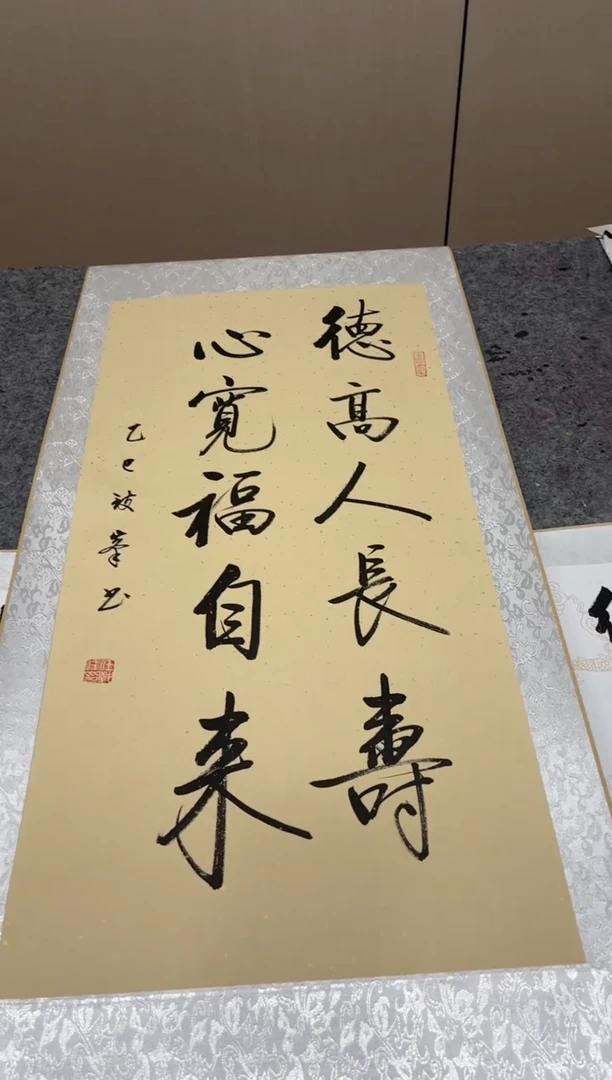 德高人長壽
心寬福自来
乙巳祓峯书